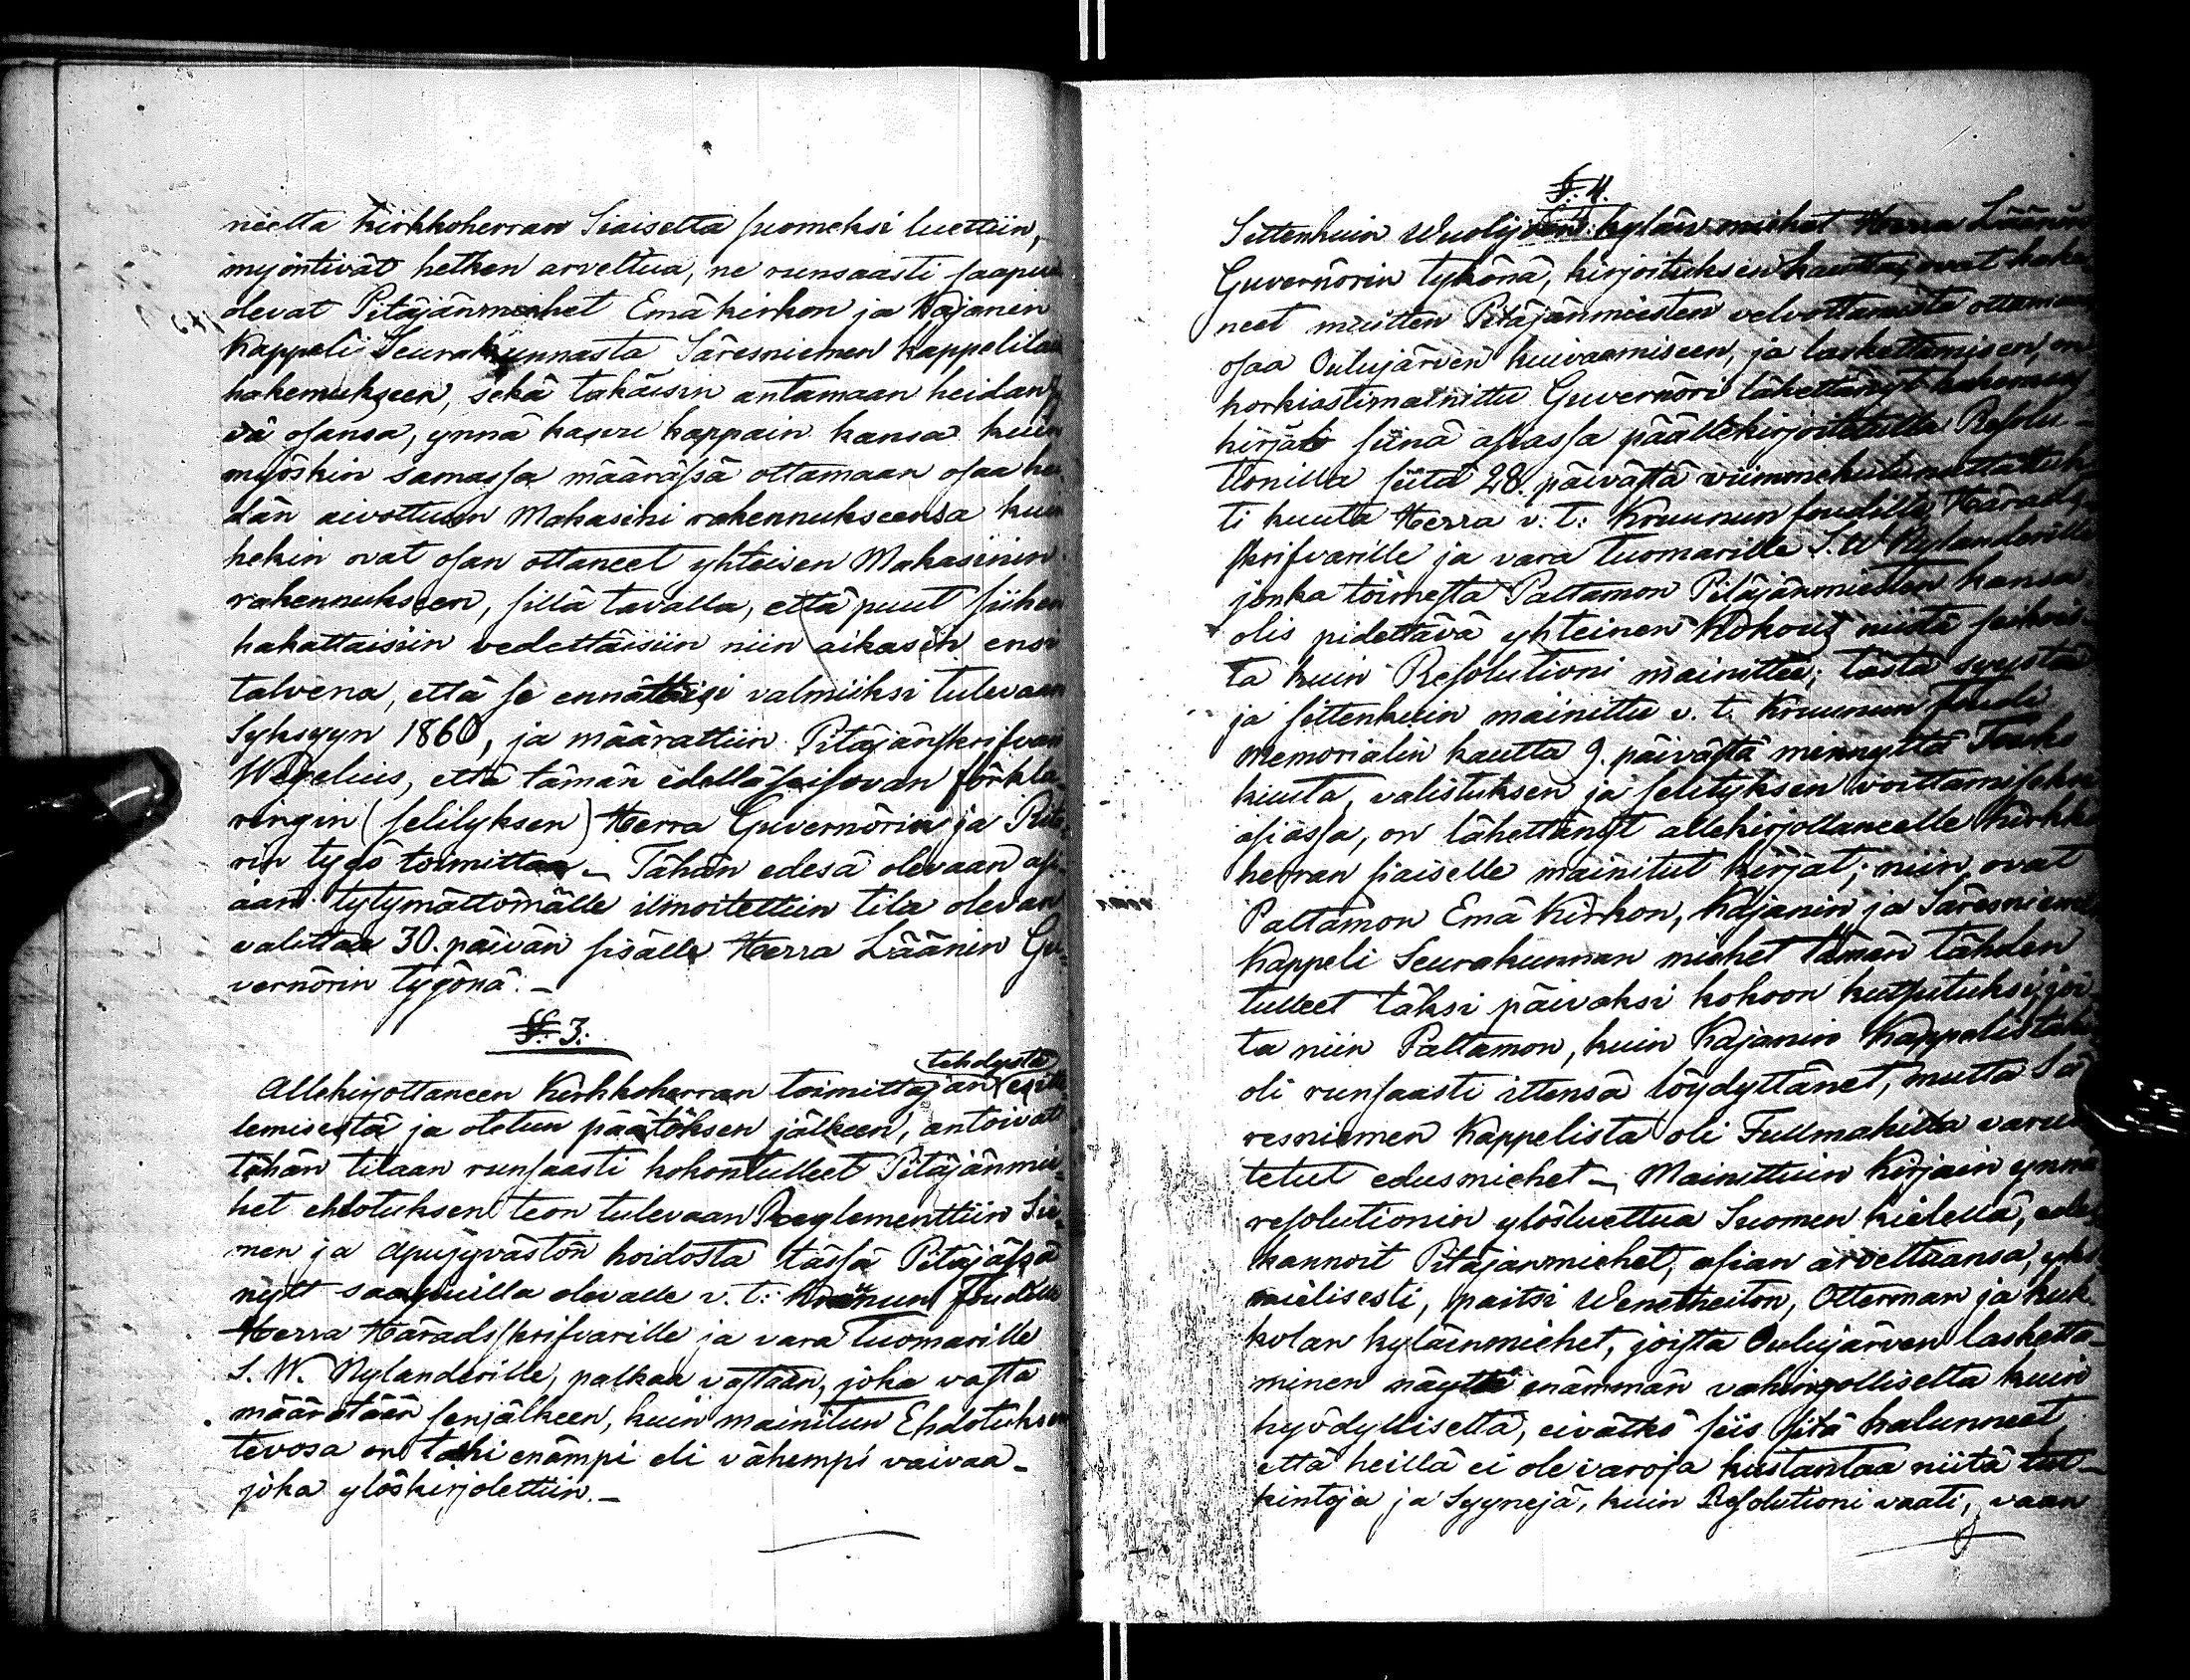 neelta kirkkoherran Siaiselta suomeksi luettiin,
myöntivät hetken arveltua, ne runsaasti saapuvi
olevat Pitäjänmiehet Emäkirkon ja Kajanin
Kappeli Seurakunnasta Säresniemen kappelilais
hakemukseen, sekä takaisin antamaan heidän
vä osansa, ynnä kasvu kappain kansa kuin
myöskin samassa määrässä ottamaan osaa hei
dän aivottuun Makasini rakennukseensa kuin
hekin ovat osan ottaneet yhteisen Makasinin
rakennukseen, sillä tavalla, että puut siihen
hakattaisiin vedettäisiin niin aikasin ensi
talvena, että se ennättäisi valmiiksi tulevaan
Syksyyn 1860, ja määrattiin Pitäjänskrifvari
Wegelius, että tämän edelläseisovan förkla-
ringin (selityksen) Herra Guvernörin ja Rite-
rin tygö toimittaa - Tähän edesä olevaan asi-
aan tytymättömälle ilmoitettiin tila olevan
valittaa 30. päivän sisälle Herra Läänin Gu-
vernörin tygönä. -
§. 3.
tehdystä
Allekirjottaneen Kirkkoherran toimittajan esitte
lemisestä ja otetun päätöksen jälkeen, antoivat
tähän tilaan runsaasti kokontulleet Pitäjänmie-
het ehdotuksen teon tulevaan Reglementtiin Sie-
men ja Apujyvästön hoidosta tässä Pitäjässä
nyt saapuilla olevalle v. t: Kruunun foudille
Herra Häradsskrifvarille ja vara Tuomarille
S. W. Nylanderille, palkaa vastaan, joka vasta
määrätään senjälkeen, kuin mainitun Ehdotuksen
tevosa on tahi enämpi eli vähempi vaivaa -
joka ylöskirjotettiin. -
§. 4.
Sittenkuin Wuolijoen kylän miehet Herra Läänin
Guvernörin tykönä, kirjoituksen kautta, ovat hake-
neet muitten Pitäjänmiesten velvottamista ottamaan
osaa Oulujärven kuivaamiseen, ja laskettamiseen, on
korkiastimainittu Guvernöri lähettänyt hakemus
kirjat siinä asiassa päällekirjoitetulla Resolu-
tionilla siitä 28. päivästä viimmekulunutta
ti kuuta Herra v. t: Kruunun foudille, Härads-
skrifvarille ja vara Tuomarille S. W Nylanderille
jonka toimesta Paltamon Pitäjänmiesten kansa
olis pidettävä yhteinen Kokous niistä seikois-
ta kuin Resolutioni mainittee; tästä syystä
ja sittenkuin mainittu v. t. Kruunun foudi
memorialin kautta 9. päivästä mennyttä Touko
kuuta, valistuksen ja selityksen voittamiseksi
asiassa, on lähettänyt allekirjottaneelle Kirkko
herran siaiselle mainitut kirjat; niin ovat
Paltamon Emä Kirkon, Kajanin ja Säresniemen
Kappeli Seurakunnan miehet tämän tähden
tulleet täksi päiväksi kokoon kutsutuksi, jois-
ta niin Paltamon, kuin Kajanin Kappelista
oli runsaasti ittensä löydyttänet, mutta Sä
resniemen Kappelista oli Fullmakilla varus
tetut edusmiehet - Mainittuin Kirjain ynnä
resolutionin ylösluettua Suomen kielellä, edes
kannoit Pitäjänmiehet, asian arveltuansa, yksi
mielisesti, paitsi Wenetheiton, Otterman ja Kuk-
kolan kyläinmiehet, joista Oulujärven lasketta-
minen näyttä enämmän vahingolliselta kuin
hyödylliseltä, eivätkö siis sitä halunneet,
että heillä ei ole varoja kustantaa niitä tut-
kintoja ja Syynejä, kuin Resolutioni vaati, vaan